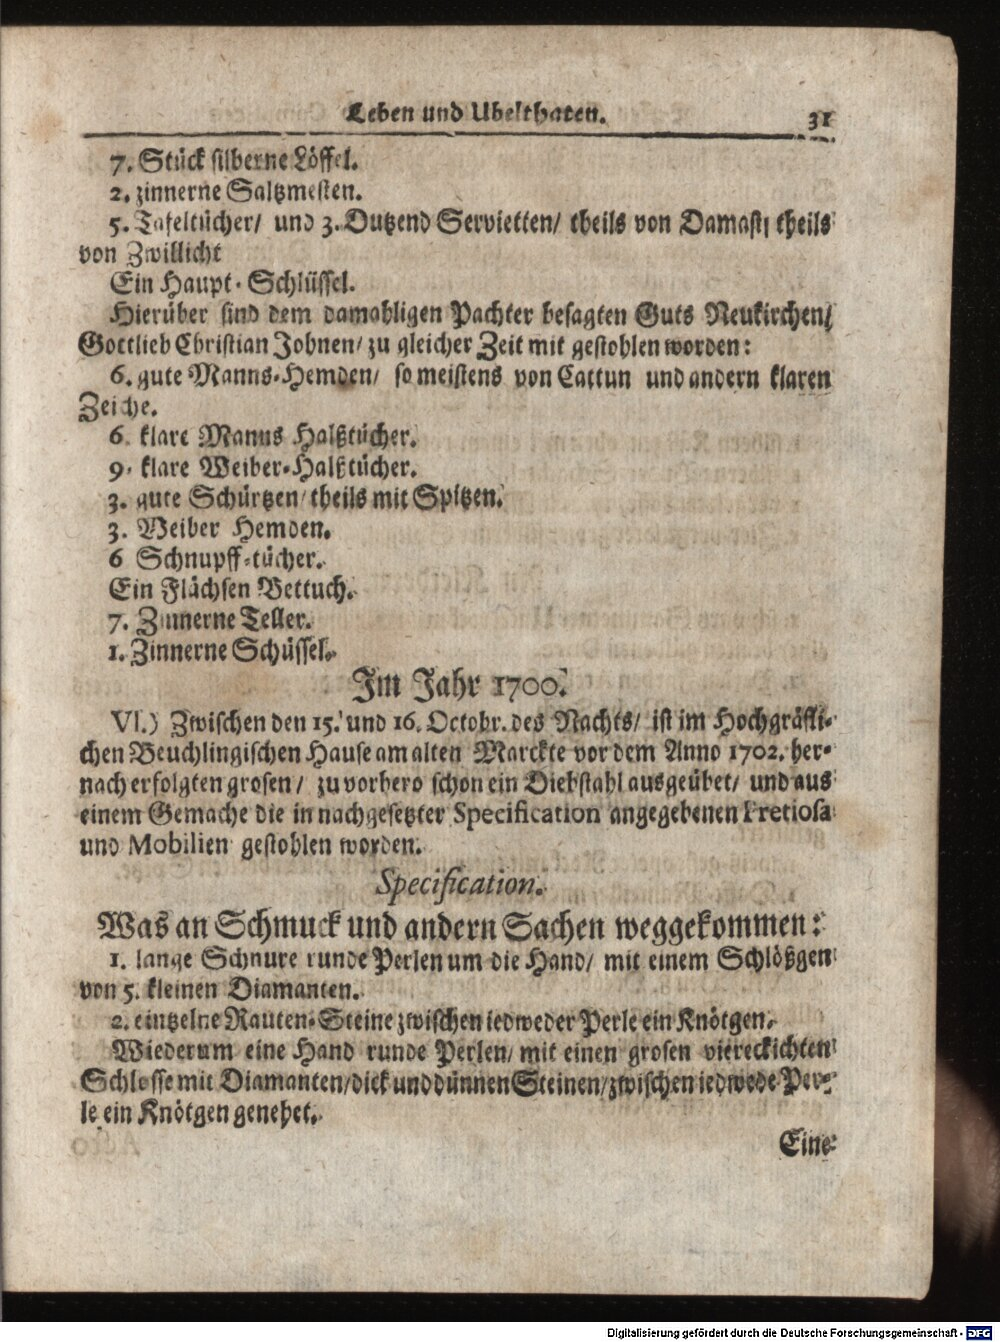 Leben und Ubelthaten. 31
7. Stück silberne Löffel.
2. zinnerne Saltzmesten.
5. Tafeltücher/ und 3. Dutzend Servietten/ theils von Damast/ theils
von Zwillicht
Ein Haupt-Schlüssel.
Hierüber sind dem damahligen Pachter besagten Guts Neukirchen/
Gottlieb Christian Johnen/ zu gleicher Zeit mit gestohlen worden:
6. gute Manns-Hemden/ so meistens von Cattun und andern klaren
Zeiche.
6. klare Manns Halßtücher.
9. klare Weiber-Halßtücher.
3. gute Schürtzen/ theils mit Spitzen.
3. Weiber Hemden.
6 Schnupff-tücher.
Ein Flächsen Bettuch.
7. Zinnerne Teller.
1. Zinnerne Schüssel.
Im Jahr 1700.
VI.) Zwischen den 15. und 16. Octobr. des Nachts/ ist im Hochgräfli-
chen Beuchlingischen Hause am alten Marckte vor dem Anno 1702. her-
nach erfolgten grosen/ zu vorhero schon ein Diebstahl ausgeübet/ und aus
einem Gemache die in nachgesetzter Specification angegebenen Pretiosa
und Mobilien gestohlen worden.
Specification.
Was an Schmuck und andern Sachen weggekommen:
1. lange Schnure runde Perlen um die Hand/ mit einem Schlößgen
von 5. kleinen Diamanten.
2. eintzelne Rauten-Steine zwischen iedweder Perle ein Knötgen.
Wiederum eine Hand runde Perlen/ mit einen grosen viereckichten
Schlosse mit Diamanten/ dick und dünnen Steinen/ zwischen iedwede Per-
le ein Knötgen genehet.
Eine
Digitalisierung gefördert durch die Deutsche Forschungsgemeinschaft - DFG